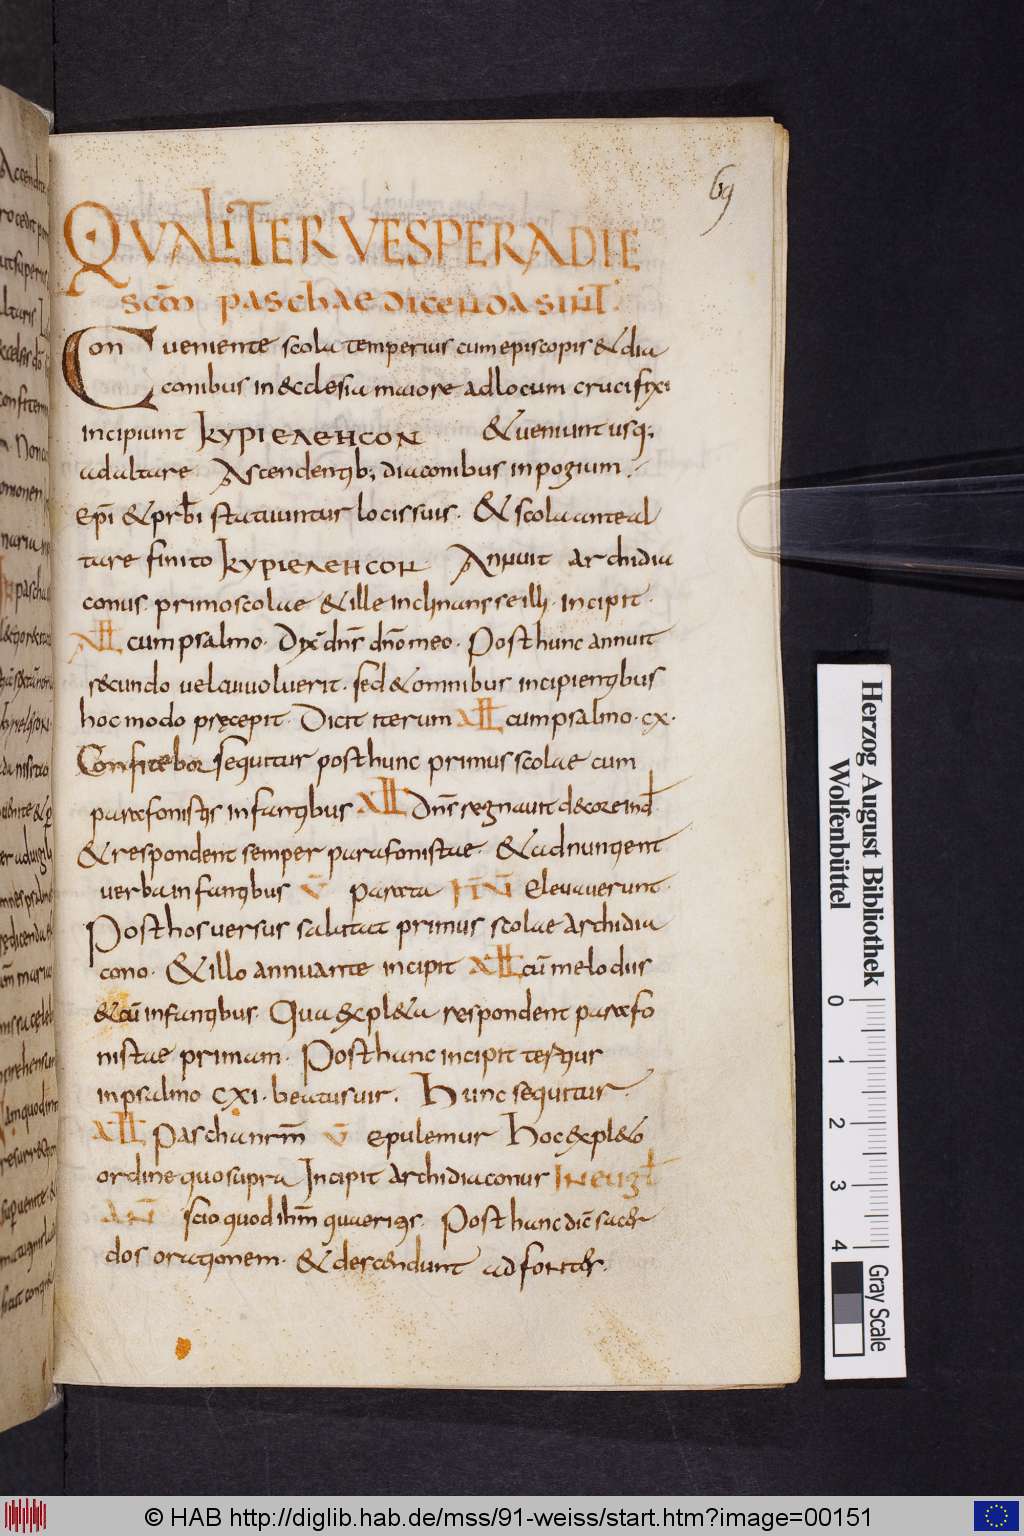 69
QVALITER VESPERA DIE
SCŌ PASCHAE DICENDA SINT.
Conueniente scola temperius cum episcopis & dia
conibus in ecclesia maiore ad locum crucifixi
incipiunt KYPIEΛEHCON & ueniunt usq;
ad altare Ascendentib; diaconibus in pogium
epi & prbi statuuntur locis suis. & scola ante al
tare finito KYPIEΛEHCON Annuit archidia
conus primo scolae & ille inclinans se illi. incipit.
ALL cum psalmo. Dix dns dno meo. Post hunc annuit
secundo uel cui uoluerit. sed & omnibus incipientibus
hoc modo pręcepit. Dicit iterum ALL cum psalmo. cx.
Confitebor sequitur post hunc primus scolae cum
parafonistis infantibus ALL Dns regnauit decore ind
& respondent semper parafonistae. & adnuntient
uerba infantibus V parata IIN V eleuauerunt.
Post hos uersus salutat primus scolae archidia
cono. & illo annuante incipit ALL cū melodiis
& cū infantibus. Qua expleta respondent parafo
nistae primam. Post hanc incipit tertius
in psalmo cxi. beatus uir. Hunc sequitur
ALL Pascha nrm V epulemur Hoc expleto
ordine quo supra Incipit archidiaconus IN EUGL
AN scio quod ihm quaeritis. Post hanc dic sacer
dos orationem. & descendunt ad fontes.
Herzog August Bibliothek
Wolfenbüttel
0 1 2 3 4
Gray Scale
© HAB http://diglib.hab.de/mss/91-weiss/start.htm?image=00151